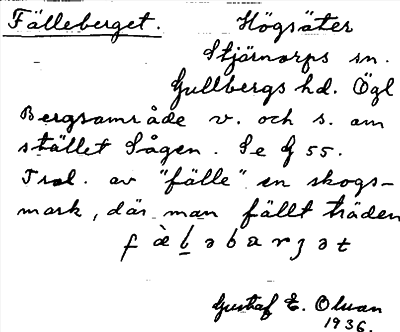 Fälleberget. Högsäter
Stjärnorps sn.
Gullbergs hd. Ögl
Bergsområde v. och s. om
stället Sågen. Se G 55.
Trol. av "fälle" en skogs-
mark, där man fällt träden
Gustaf E. Olsan
1936.